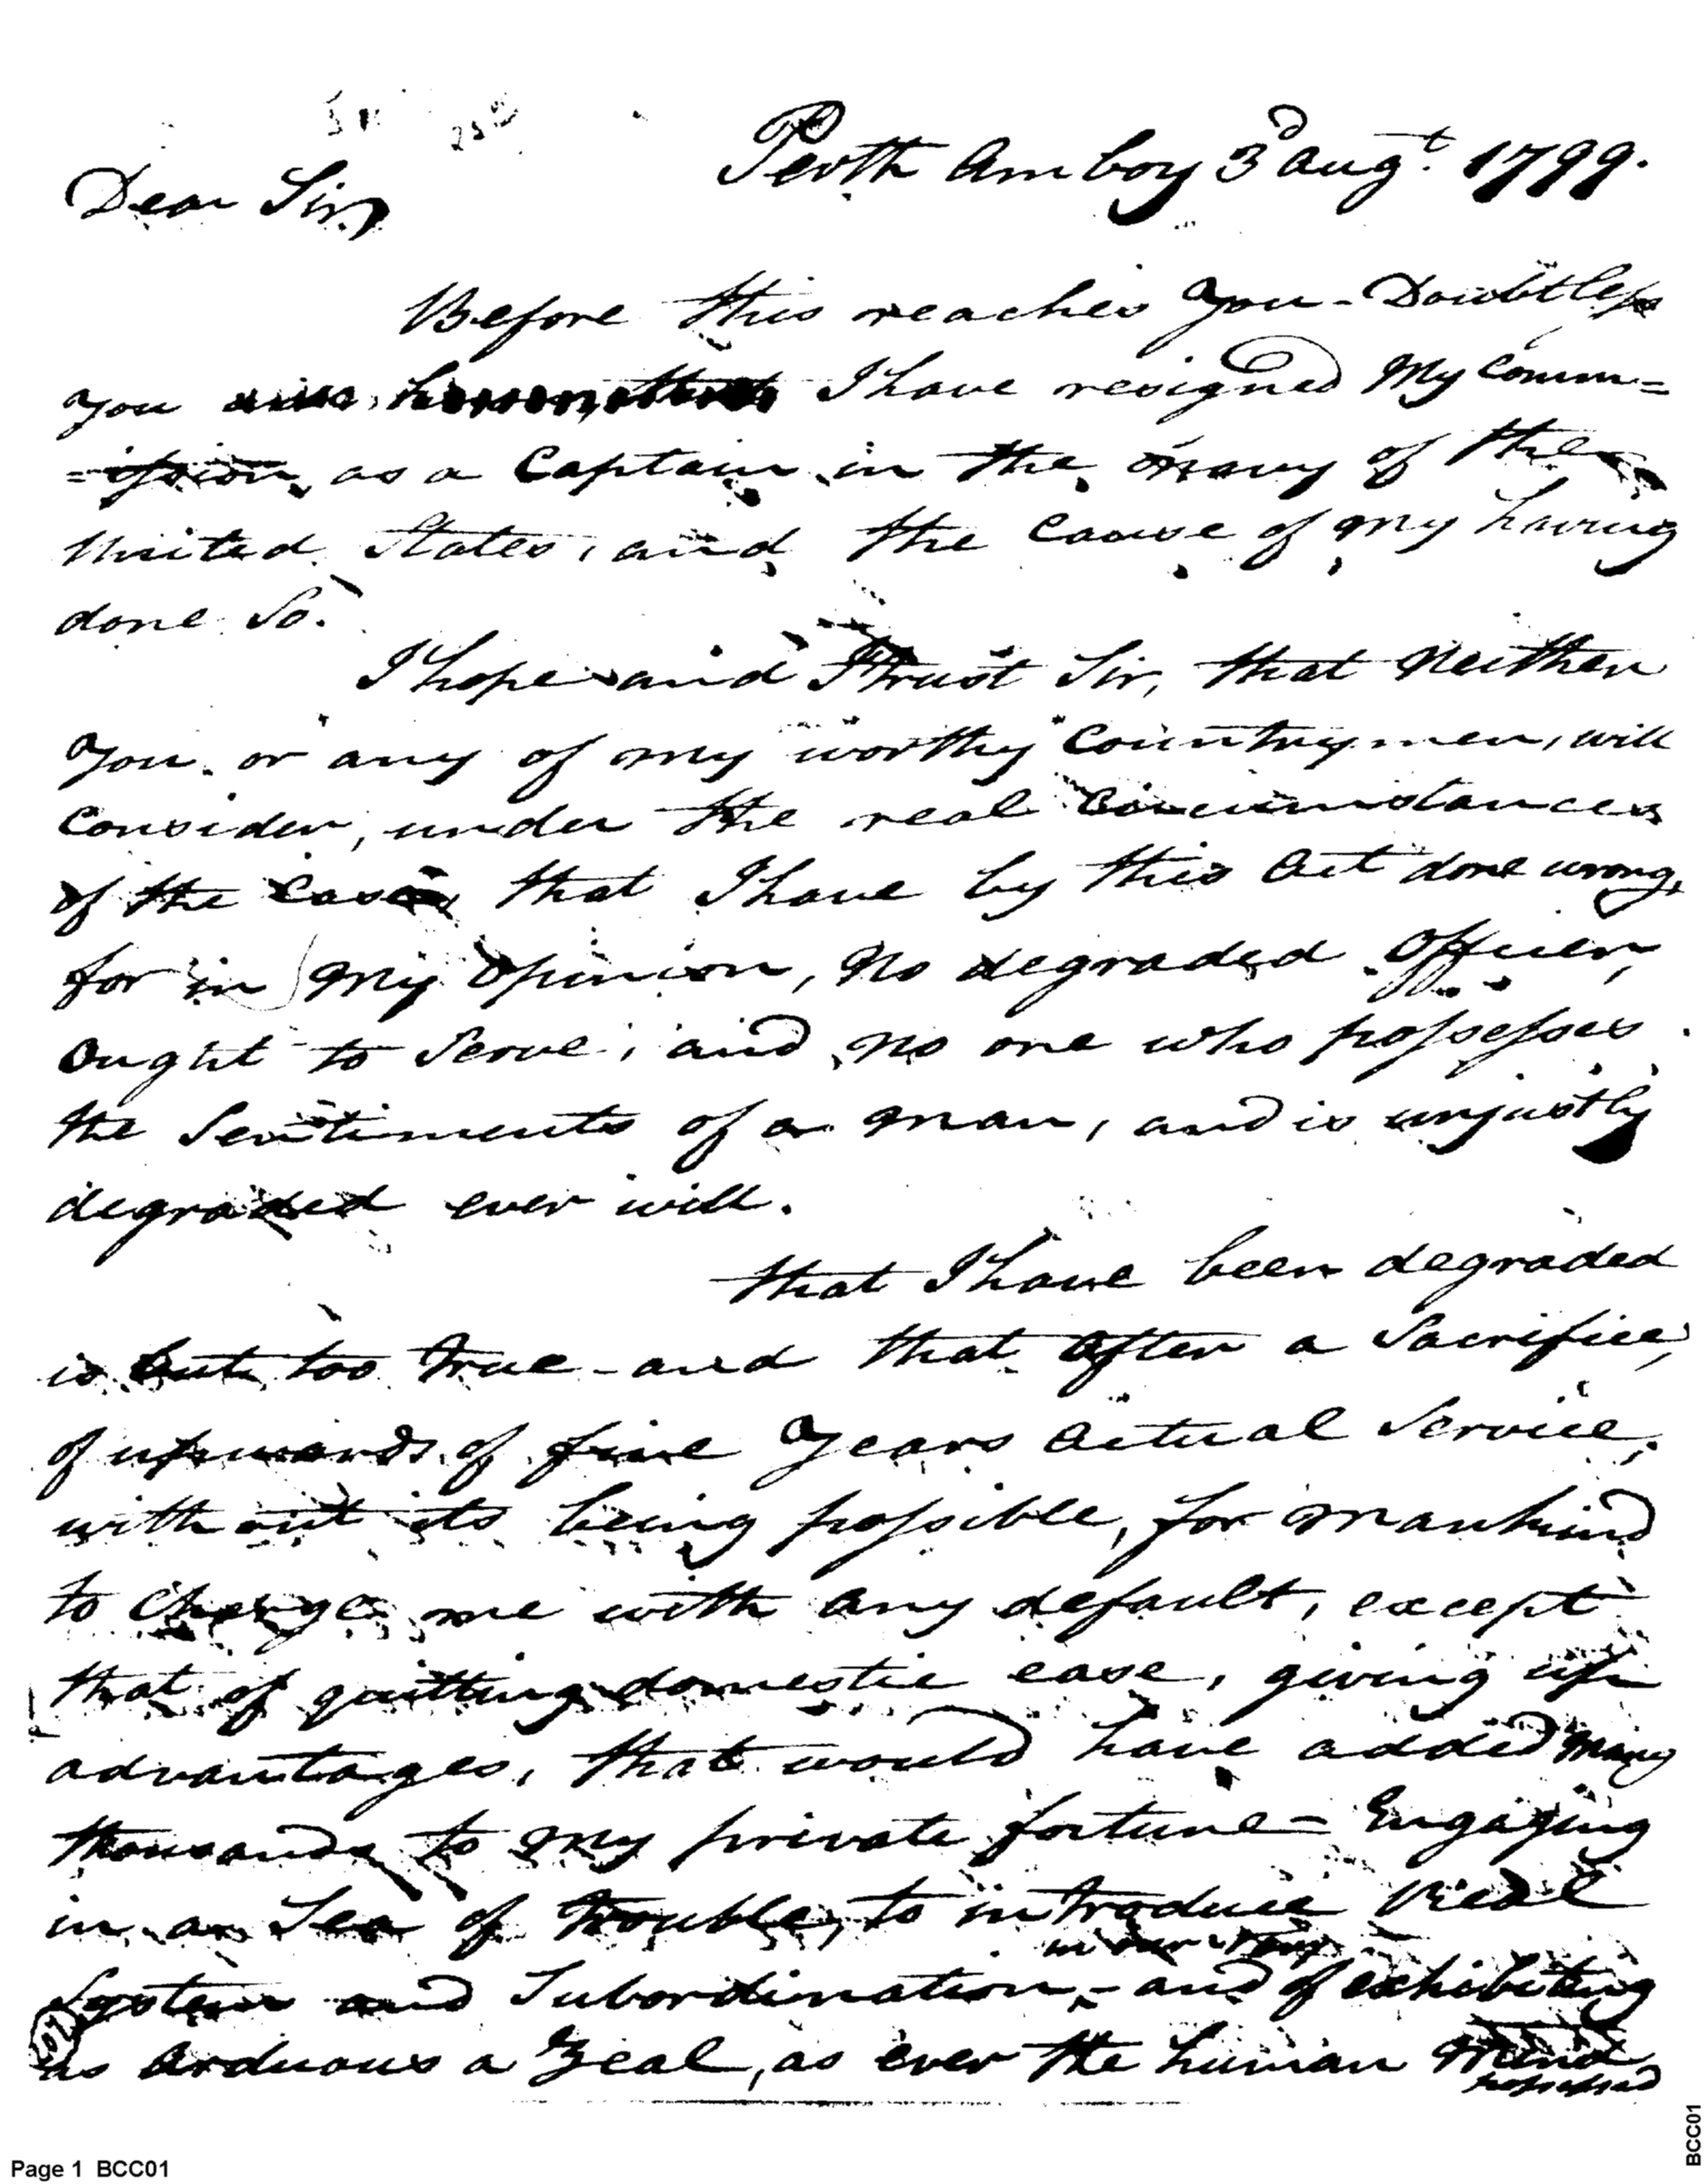 Perth Amboy 3d Augt. 1799.
Dear Sir
Before this reaches you - Doubtless
you I have resigned My Comm=
=ission, as a Captain in the Navy of the
United States, and the Cause of my having
done So.
I hope and Trust Sir, that Neither
you or any of my worthy Countrymen, will
Consider, under the real Circumstances
of the Case, that I have by this Act done wrong,
for in My Opinion, No degraded Officer,
Ought to Serve; and no one who possesses
the Sentiments of a man, and is unjustly
degraded ever will.
that I have been degraded
is but too True - and that After a Sacrifice,
of upwards of five Years Actual Service,
without its being possible, for Mankind
to Charge me with any default, except
that of quitting domestic ease, giving up
advantages, that would have added Many
thousands to My private fortune - Engaging
in a Sea of trouble, to introduce real
in our Navy
System and Subordination, - and of exhibiting
as Arduous a Zeal, as ever the human Mind
possessed
Page 1 BCC01
BCC01